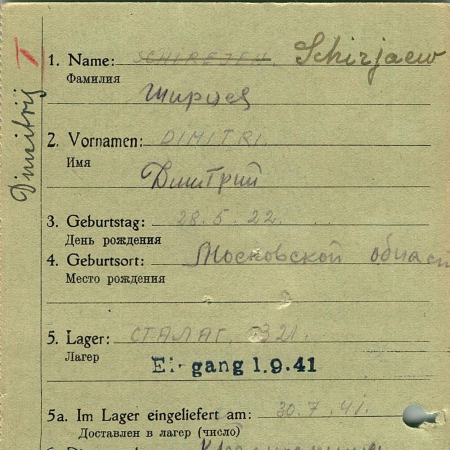 Dimitrij
I
1. Name: SCHIREJEW. Schirjaew
Фамилия
Ширяев
2. Vornamen: DIMITRI.
Имя
Дмитрий
3. Geburtstag: 28. 5. 22.
День рождения
4. Geburtsort: Московской област
Место рождения
5. Lager: СТАЛАГ. 321.
Лагер
Eingang 1.9.41
5a. Im Lager eingeliefert am: 30. 7. 41.
Доставлен в лагер (число)